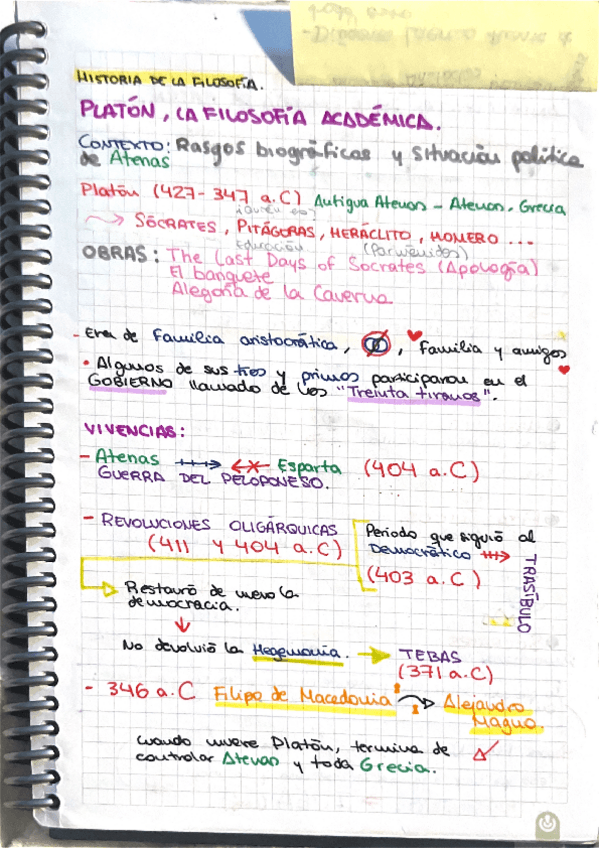 HISTORIA DE LA FILOSOFÍA.
PLATÓN, LA FILOSOFÍA ACADÉMICA.
CONTEXTO: Rasgos biográficos y situación política
de Atenas
Platón (427-347 a.C) Antigua Atenas - Atenas, Grecia
¿Quién es?
SÓCRATES, PITÁGORAS, HERÁCLITO, HOMERO ...
Educación (Parménides)
OBRAS: The Last Days of Socrates (Apología)
El banquete
Alegoría de la Caverna
- Era de Familia aristocrática, , Familia y amigos
• Algunos de sus tíos y primos participaron en el
GOBIERNO llamado de los "Treinta tiranos".
VIVENCIAS:
- Atenas Esparta (404 a.C)
GUERRA DEL PELOPONESO.
- REVOLUCIONES OLIGÁRQUICAS
(411 y 404 a.C)
Periodo que siguió al
Democrático
(403 a.C)
TRASÍBULO
Restauró de nuevo la
democracia.
No devolvió la Hegemonía. TEBAS
(371 a.C)
- 346 a.C Filipo de Macedonia Alejandro
Magno.
cuando muere Platón, termina de
controlar Atenas y toda Grecia.